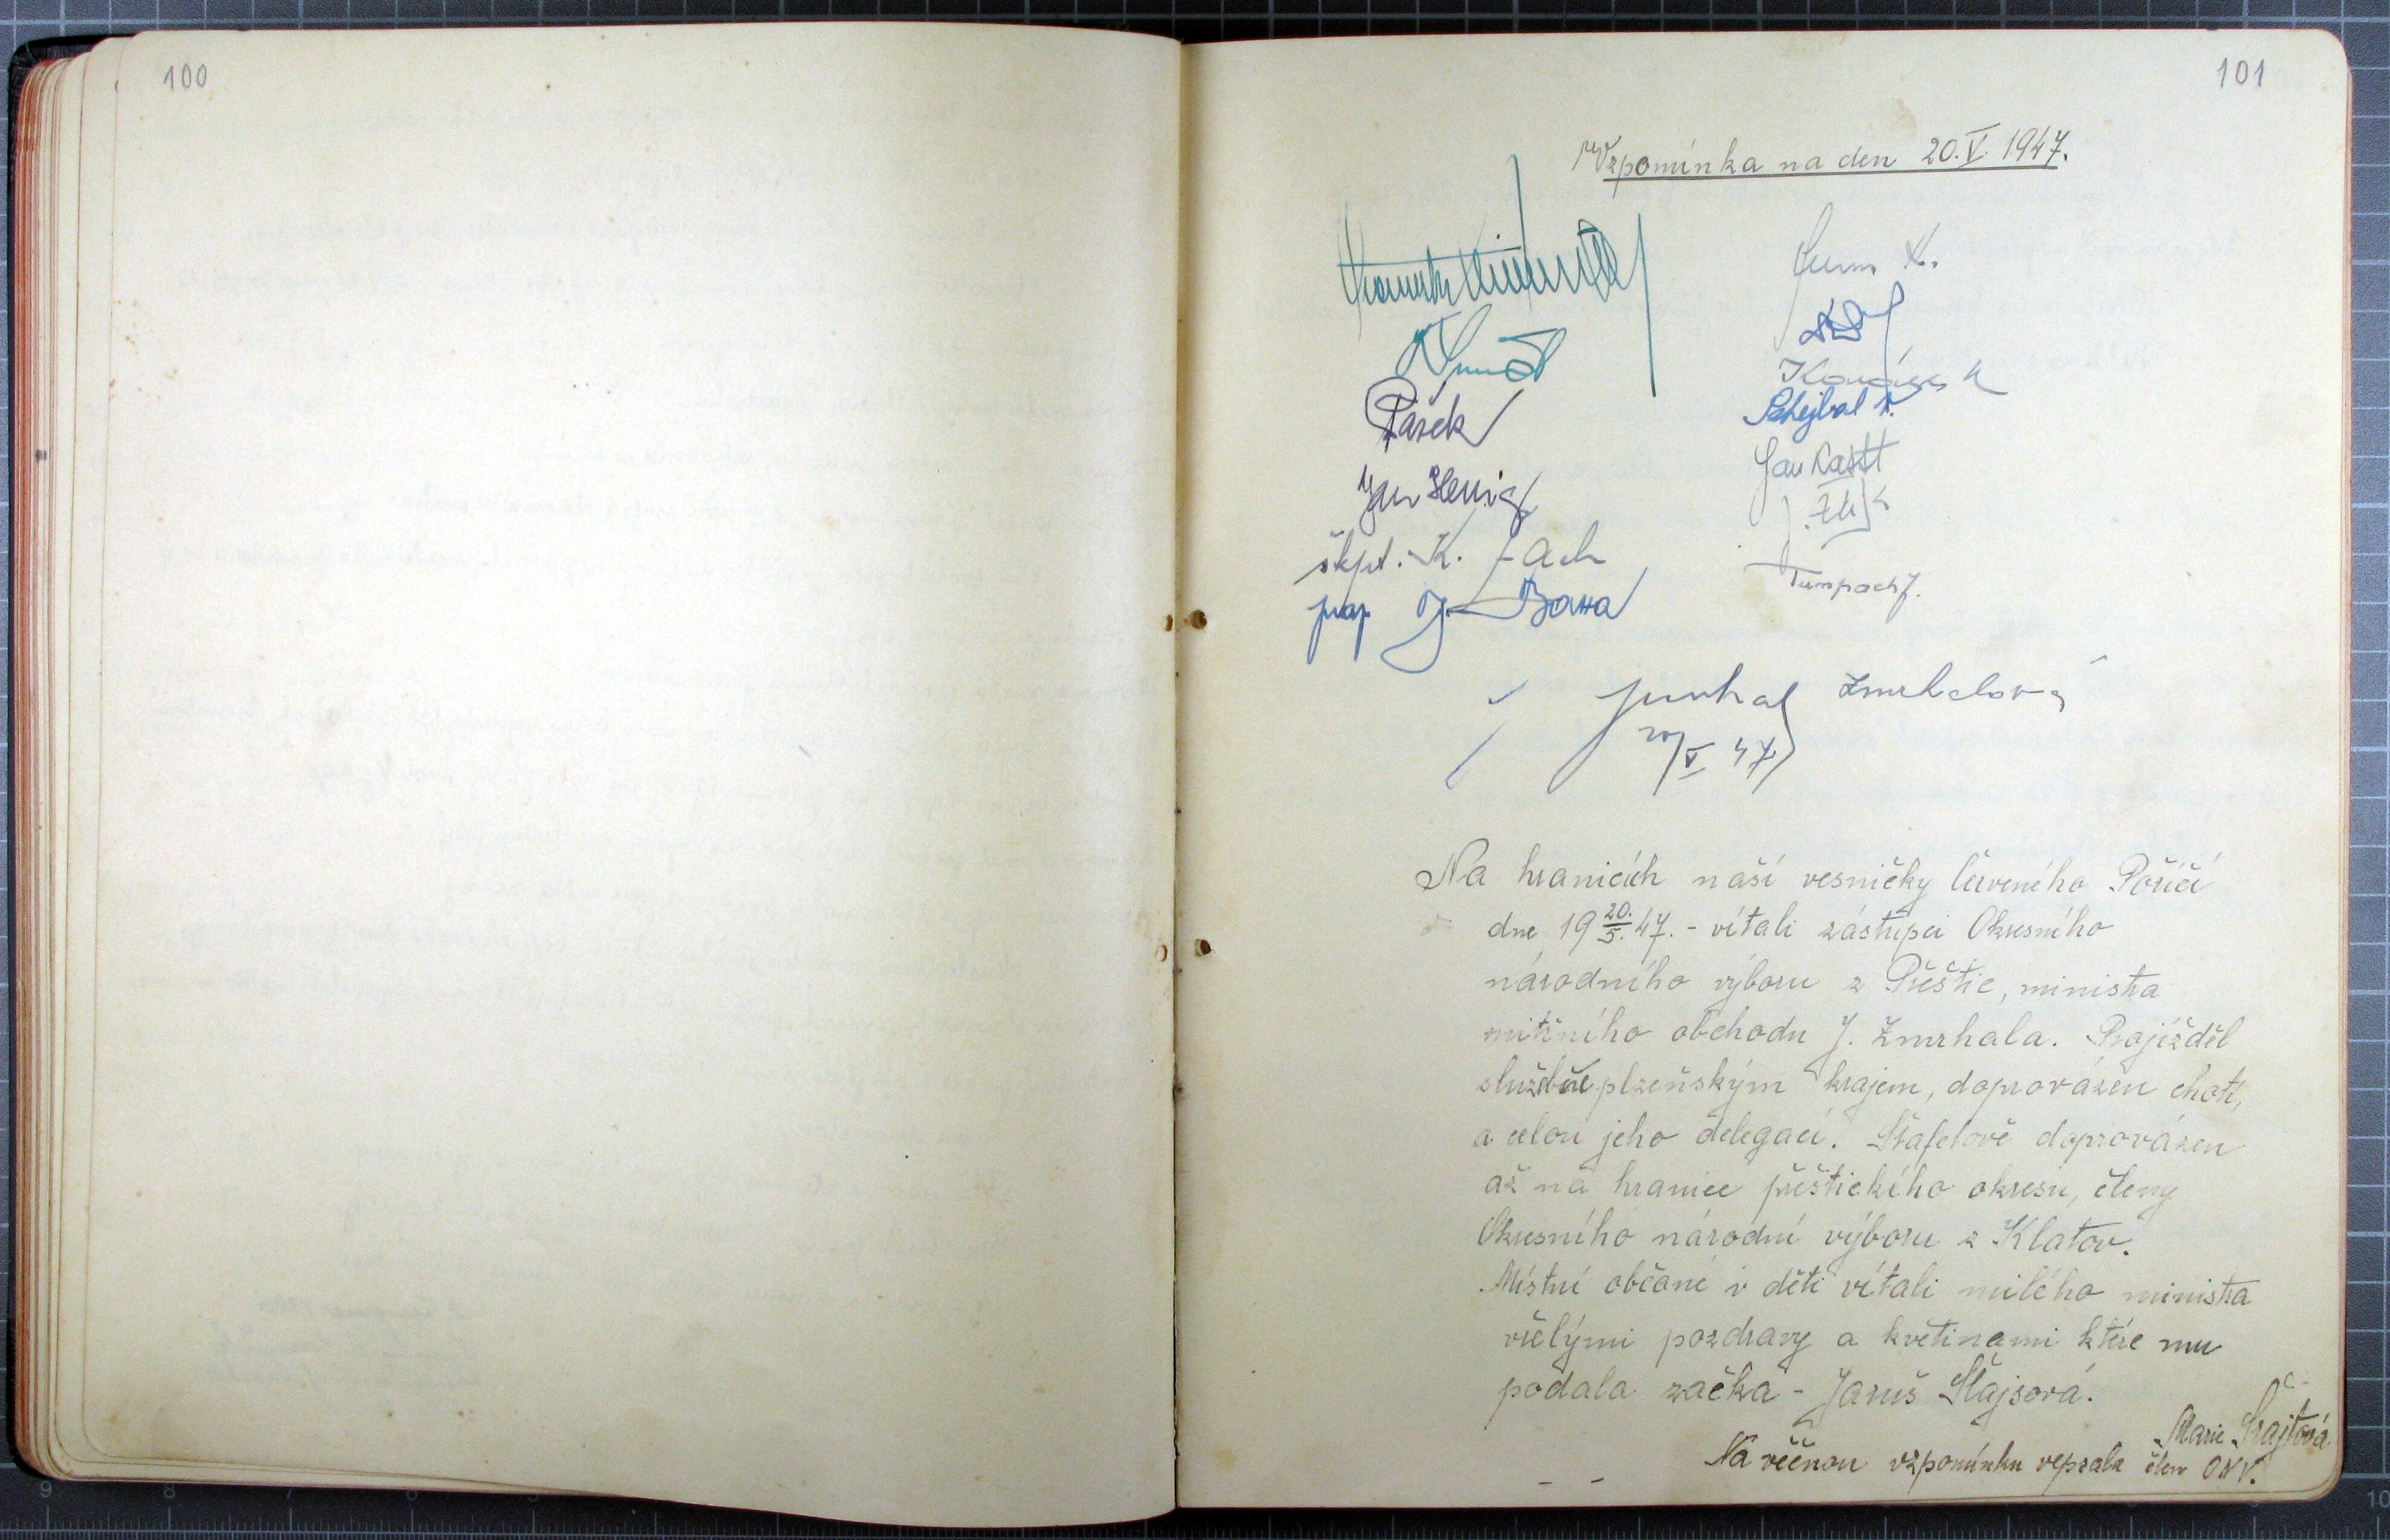 100
101
Vzpomínka na den 20. V. 1947.
K.
Pašek
Schejbal
Jan Henig
Jan Kastl
škpt. K.
prap J.
Tumpach J.
Zmrhalová
20/V 47
Na hranicích naší vesničky Červeného Poříčí
dne 19 20./5. 47. - vítali zástupci Okresního
národního výboru z Přeštic, ministra
vnitřního obchodu J. Zmrhala. Projížděl
služebně plzeňským krajem, doprovázen chotí,
a celou jeho delegací. Štafetově doprovázen
až na hranice přeštického okresu, členy
Okresního národní výboru z Klatov.
Místní občané i děti vítali milého ministra
vřelými pozdravy a květinami které mu
podala začka - Jaruš Šlajsová.
Marie Šrajtová
Na věčnou vzpomínku vepsala člen ONV.